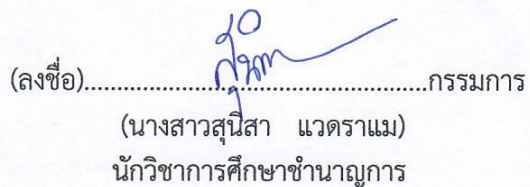 (ลงชื่อ)..................................................กรรมการ
(นางสาวสุนิสา แวดราแม)
นักวิชาการศึกษาชำนาญการ